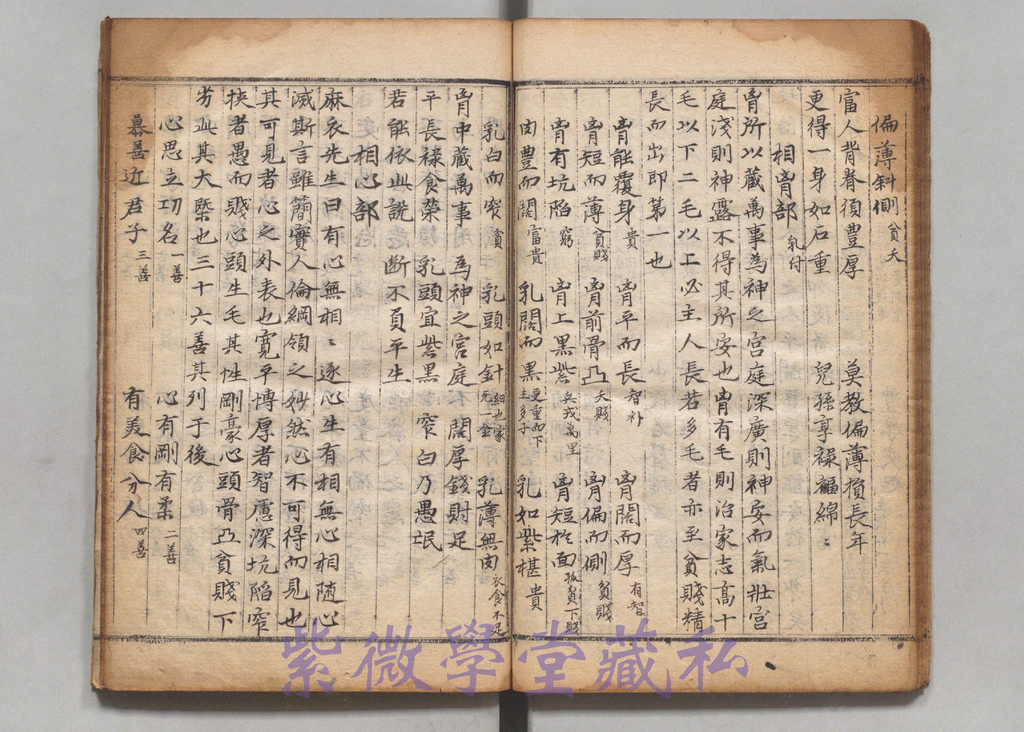 偏薄斜側 貧夭
富人背脊須豐厚 莫教偏薄損長年
更得一身如石重 兒孫享祿福綿〻
相胷部 乳付
胷所以藏萬事為神之宮庭深廣則神安而氣壯宮
庭淺則神露不得其所安也胷有毛則治家志高十
毛以下二毛以上必主人長若多毛者亦至貧賤精
長而出即第一也
胷能覆身 貴 胷平而長 智朴 胷闊而厚 有智
胷短而薄 貧賤 胷前骨凸 夭賤 胷偏而側 貧賤
胷有坑陷 窮 胷上黑紫 兵戎萬里 胷短於面 下賤
肉豊而闊 富貴 乳闊而黑 更重而下主多子 乳如紫椹 貴
乳白而窄 貧 乳頭如針 細也家無一金 乳薄無肉 衣食不足
胷中藏萬事 為神之宮庭 闊厚錢財足
平長祿食榮 乳頭宜紫黑 窄白乃愚氓
若能依此說 處斷不負平生
相心部
麻衣先生曰有心無相〻逐心生有相無心相隨心
滅斯言雖簡實人倫綱領之妙然心不可得而見也
其可見者心之外表也寬平博厚者智慮深坑陷窄
狹者愚而賤心頭生毛其性剛豪心頭骨凸貧賤下
劣此其大槩也三十六善其列于後
心思立功名 一善 心有剛有柔 二善
慕善近君子 三善 有美食分人 四善
紫微學堂藏私